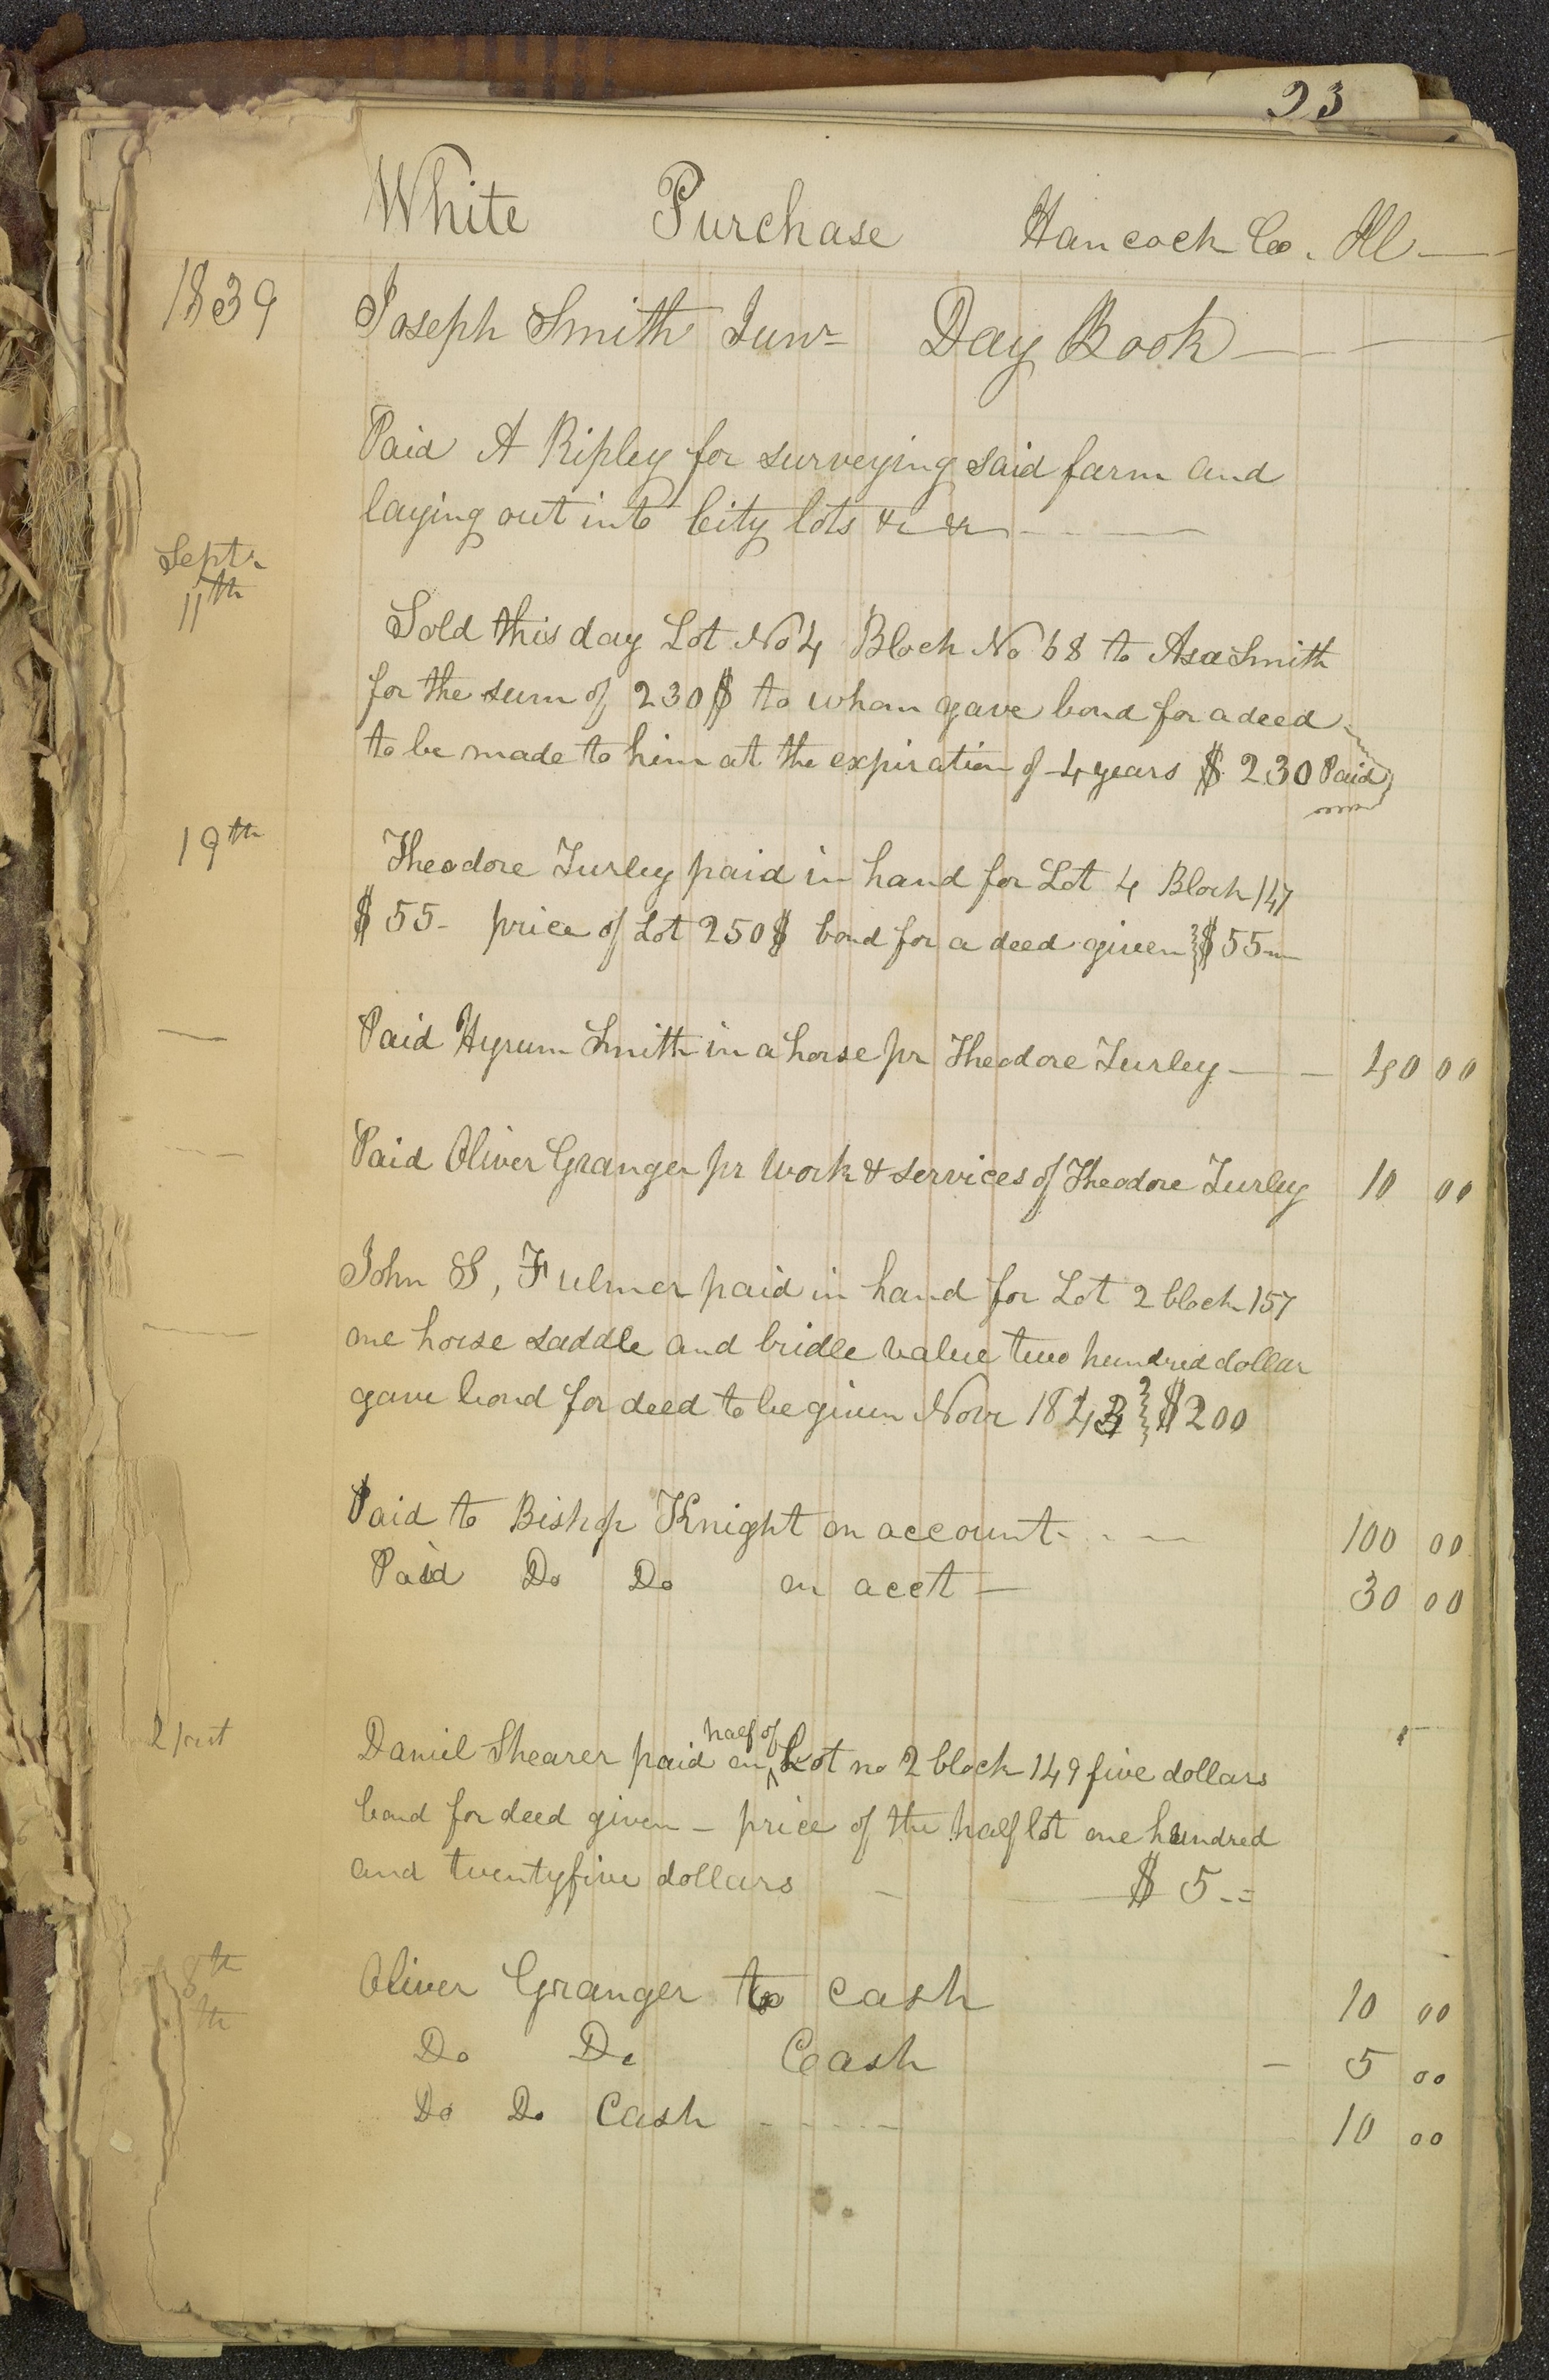 23
White Purchase Hancock Co. Ill
1839 Joseph Smith Junr Day Book
Paid A Ripley for surveying said farm and
laying out into City lots &c &c
Septr
11th
Sold this day Lot No 4 Block No 68 to Asa Smith
for the sum of 230$ to whom gave bond for a deed
to be made to him at the expiration of 4 years $ 230 Paid
19th Theodore Turley paid in hand for Lot 4 Block 147
$ 55- price of Lot 250$ bond for a deed given $ 55
Paid Hyrum Smith in a horse pr Theodore Turley 00
Paid Oliver Granger pr Work & services of Theodore Turley 10 00
John S, Fulmer paid in hand for Lot 2 block 157
one horse saddle and bridle value two hundred dollar
gave bond for deed to be given Novr $200
Paid to Bishop Knight on account 100 00
Paid Do Do on acct 30 00
Daniel Shearer paid on half of Lot no 2 block 149 five dollars
bond for deed given - price of the half lot one hundred
and twentyfive dollars $ 5
8th Oliver Granger to cash 10 00
th Do Do Cash 5 00
Do Do Cash 10 00